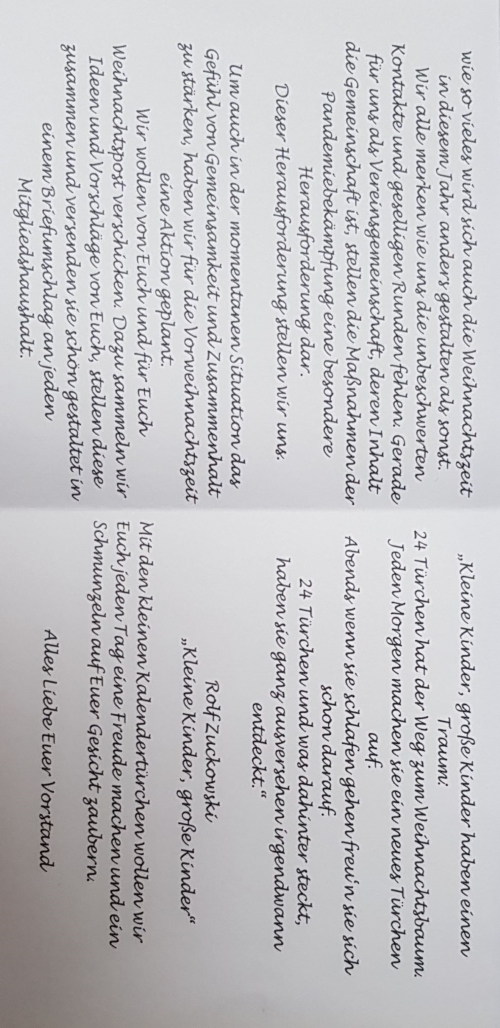 wie so vieles wird sich auch die Weihnachtszeit
in diesem Jahr anders gestalten als sonst.
Wir alle merken wie uns die unbeschwerten
Kontakte und geselligen Runden fehlen. Gerade
für uns als Vereinsgemeinschaft, deren Inhalt
die Gemeinschaft ist, stellen die Maßnahmen der
Pandemiebekämpfung eine besondere
Herausforderung dar.
Dieser Herausforderung stellen wir uns.
Um auch in der momentanen Situation das
Gefühl von Gemeinsamkeit und Zusammenhalt
zu stärken, haben wir für die Vorweihnachtszeit
eine Aktion geplant.
Wir wollen von Euch und für Euch
Weihnachtspost verschicken. Dazu sammeln wir
Ideen und Vorschläge von Euch, stellen diese
zusammen und versenden sie schön gestaltet in
einem Briefumschlag an jeden
Mitgliedshaushalt.
„Kleine Kinder, große Kinder haben einen
Traum:
24 Türchen hat der Weg zum Weihnachtsbaum.
Jeden Morgen machen sie ein neues Türchen
auf.
Abends wenn sie schlafen gehen freu'n sie sich
schon darauf.
24 Türchen und was dahinter steckt,
haben sie ganz aus versehen irgendwann
entdeckt.“
Rolf Zuckowski
„Kleine Kinder, große Kinder“
Mit den kleinen Kalendertürchen wollen wir
Euch jeden Tag eine Freude machen und ein
Schmunzeln auf Euer Gesicht zaubern.
Alles Liebe Euer Vorstand